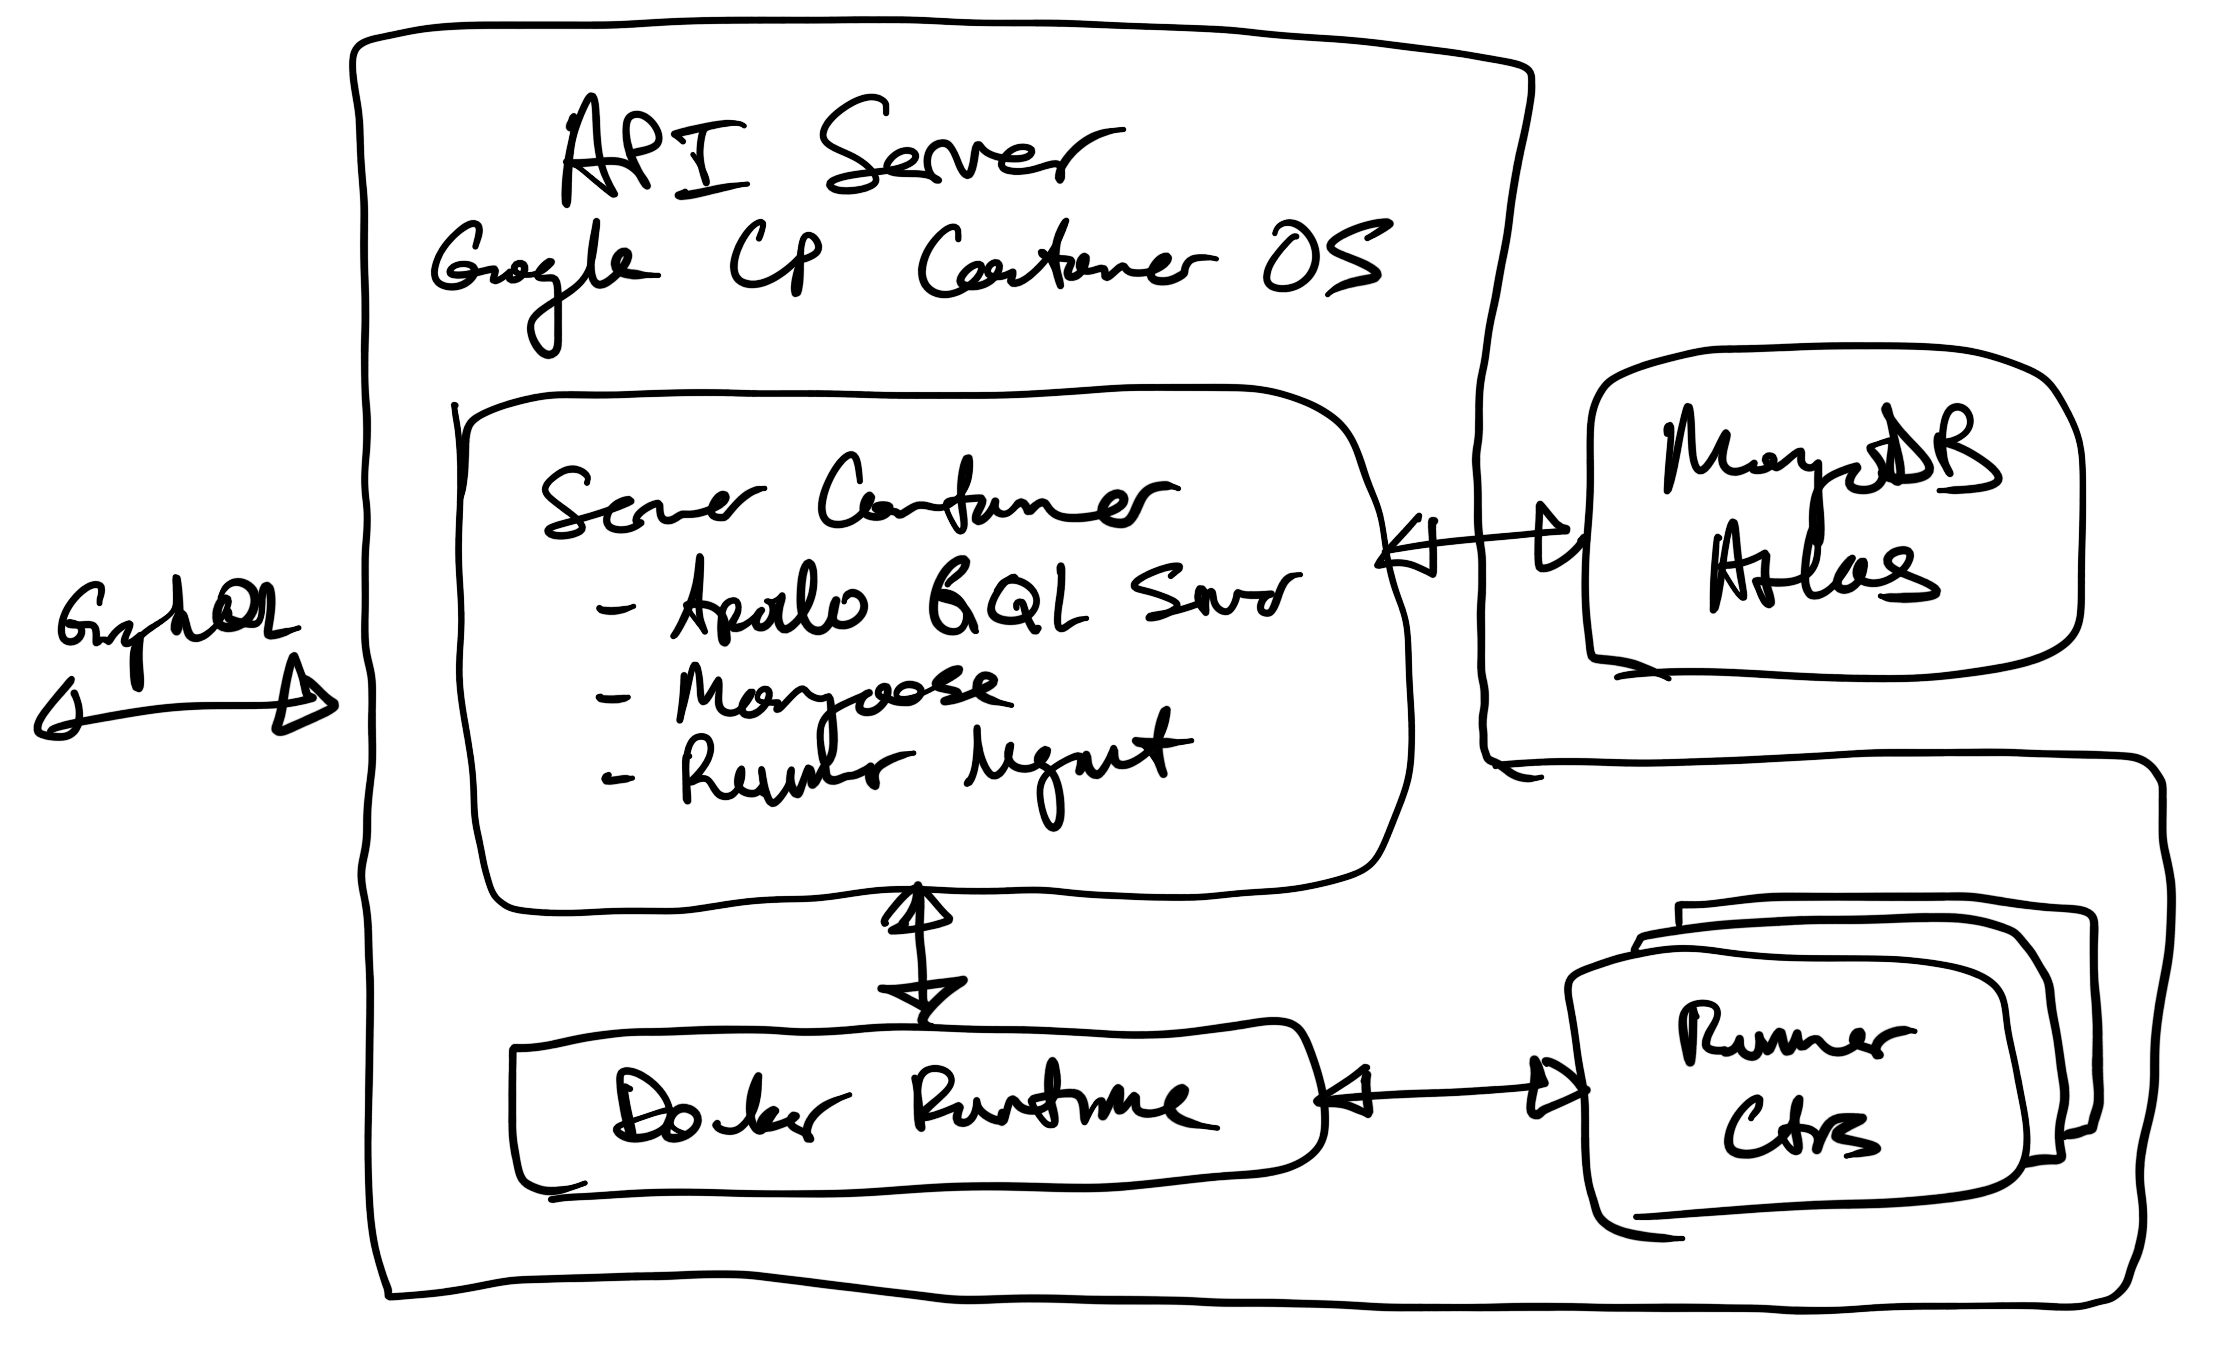 API Server
Google CP Container OS
GraphQL
Server Container
- Apollo GQL Server
- Mongoose
- Runner Mgmt
MongoDB
Atlas
Docker Runtime
Runner
Ctrs